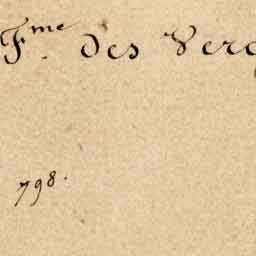 F.me des Verg
798.